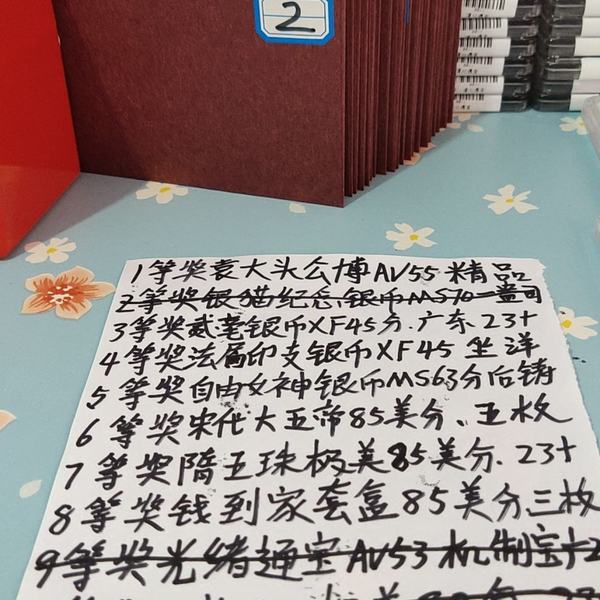 2
1等奖袁大头公博AV55精品
2等奖银猫纪念银币MS70一盎司
3等奖贰毫银币XF45分.广东.23+
4等奖法属印支银币XF45坐洋
5等奖自由女神银币MS63分后铸
6等奖宋代大五帝85美分、五枚
7等奖隋五珠极美85美分.23+
8等奖钱到家套盒85美分三枚
9等奖光绪通宝AV53机制宝